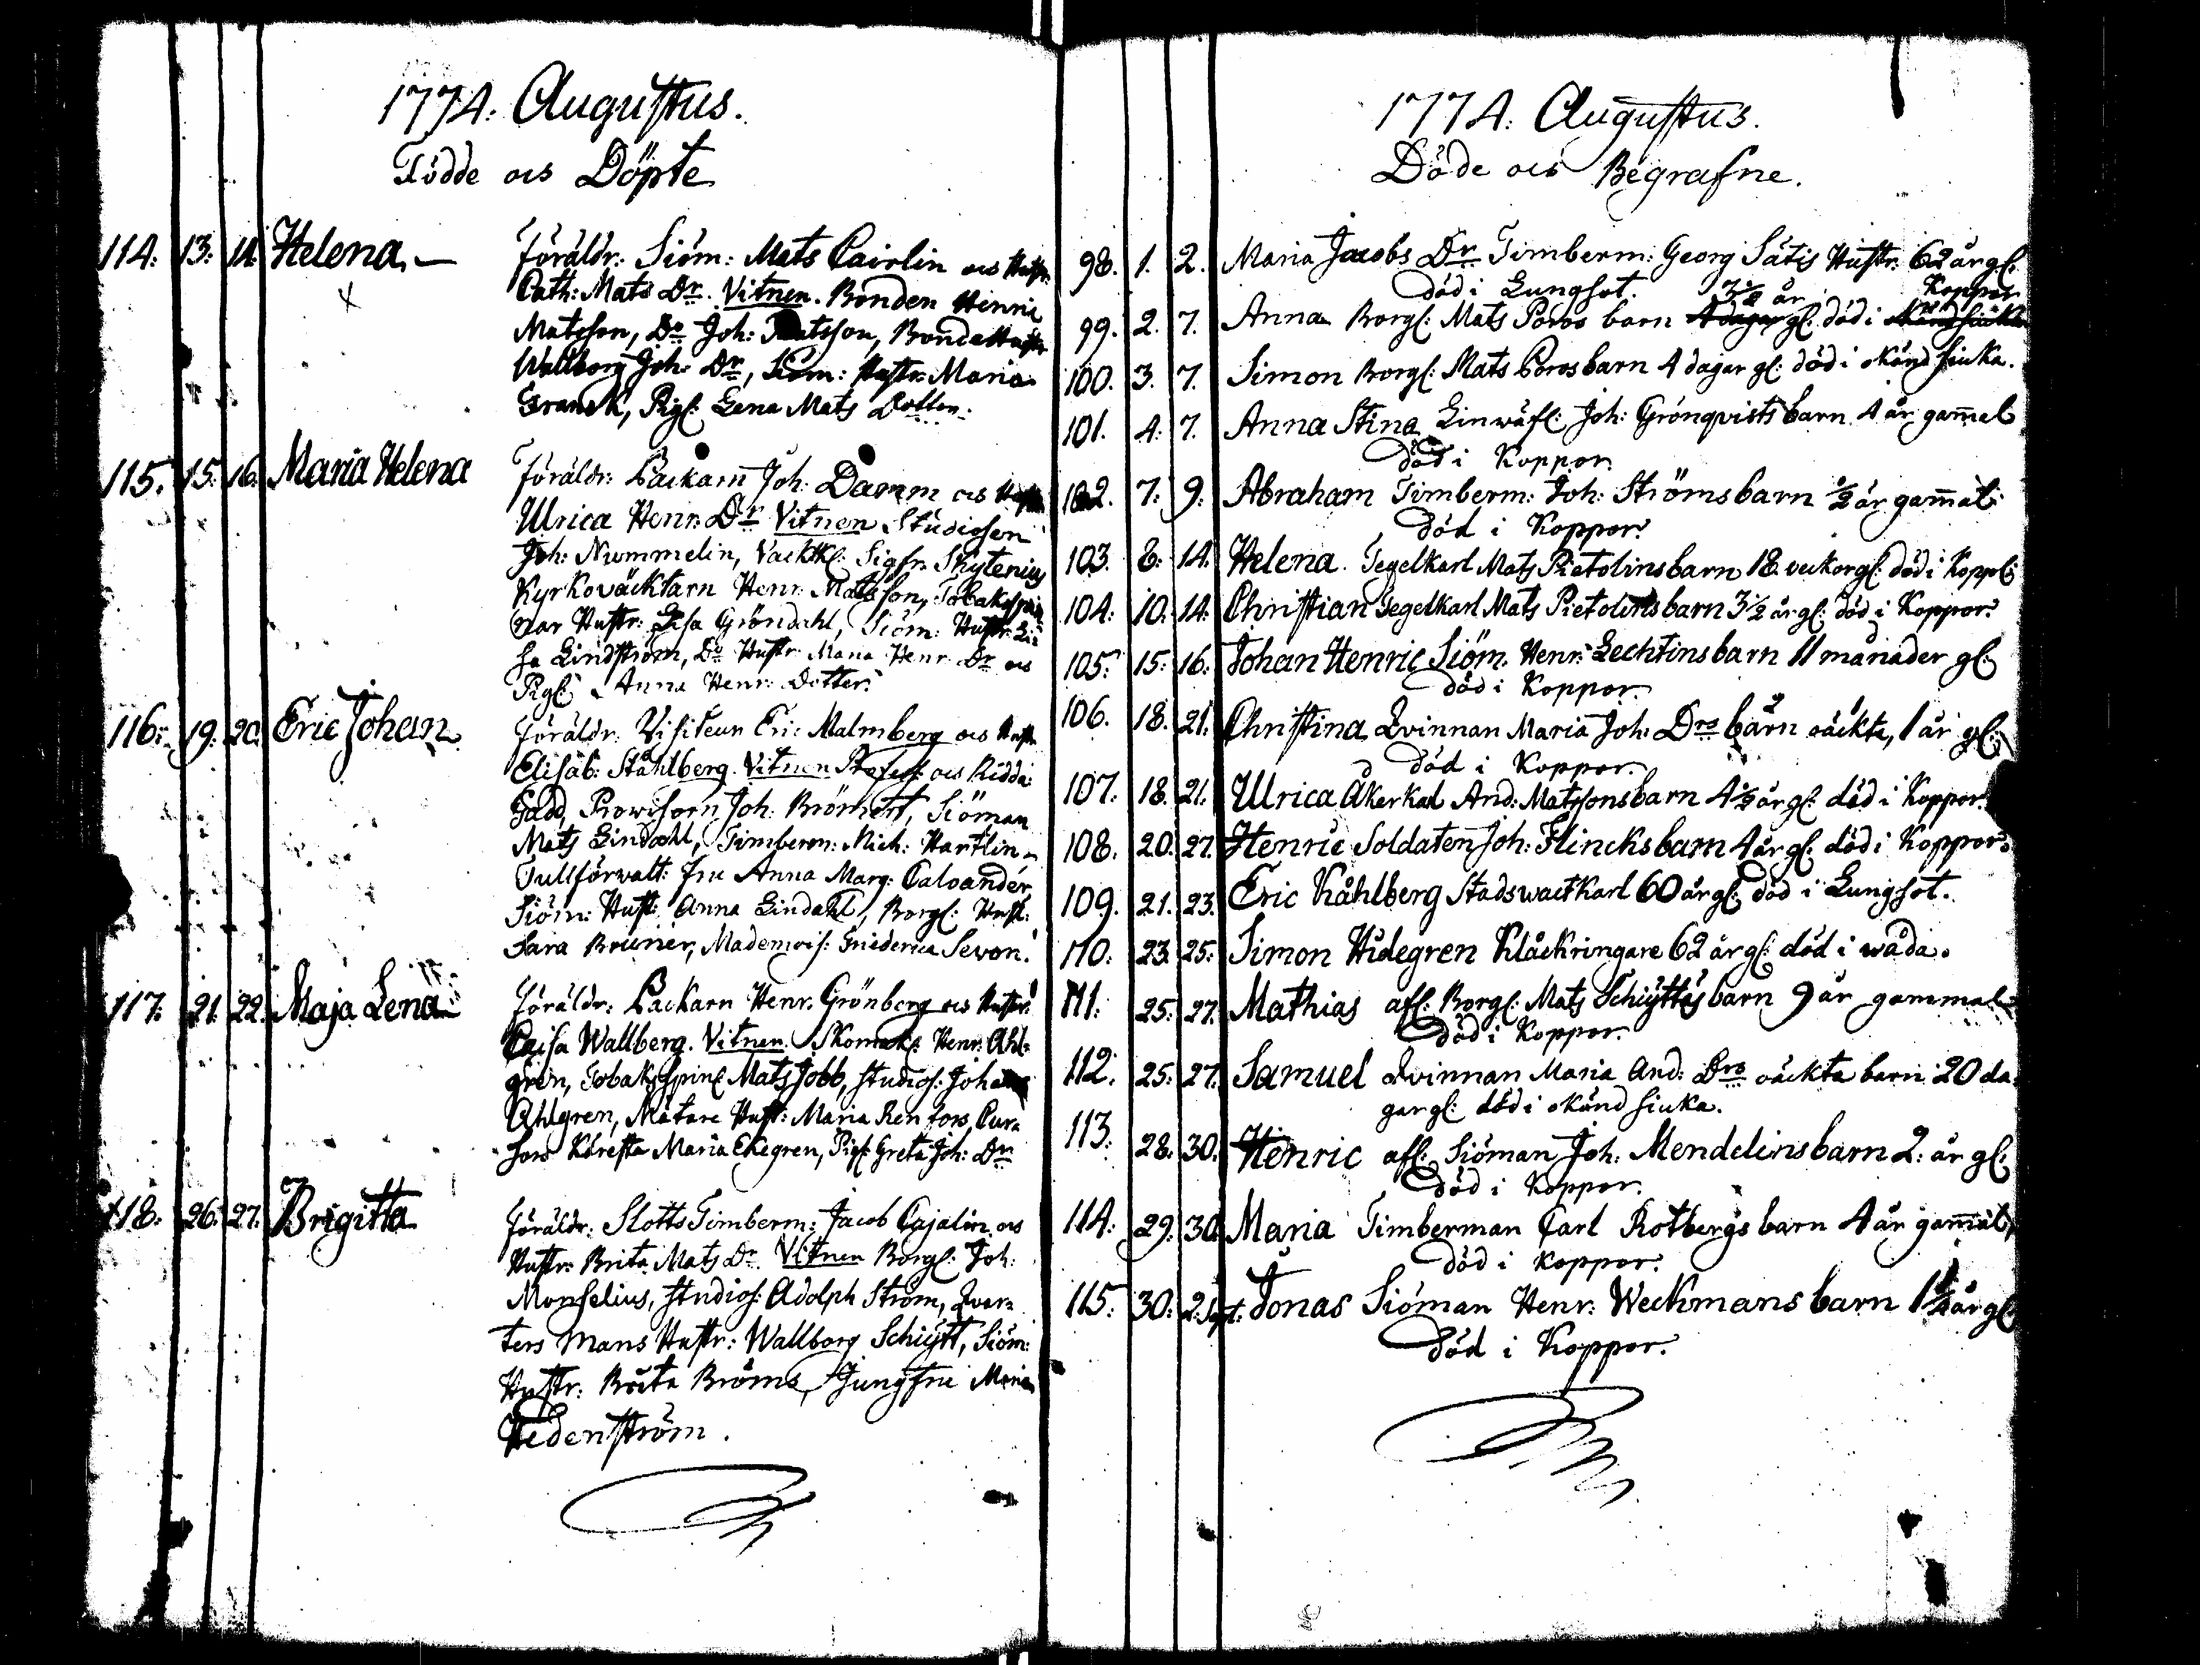 1774. Augustus.
Födde ocs Döpte
114. 13. 14. Helena. Föräldr: Siöm: Mats Cairlin ocs Hustr:
Cath: Mats Dr. Vitnen. Bonden Henric
Matsson, Do Joh: Matsson, Bonde Hustr
Wallborg Joh: Dr, Siöm: Hustr: Maria
Granek, Pigl: Lena Mats Dotter.
115. 15. 16. Maria Helena Föräldr: Packarn Joh: Damm ocs
Ulrica Henr: Dr Vitnen Studiosen
Joh: Nummelin, Vacktk: Sigfr. Skytenius
Kyrkoväcktarn Henr: Matsson, Tobakspin
nar Hustr: Lisa Gröndahl, Siöm: Hustr: Li
sa Lindström, Do Hustr Maria Henr: Dr ocs
Pigl: Anna Henr: Dotter.
116. 19. 20. Eric Johan Föräldr: Visiteur Eri: Malmberg ocs Hustr
Elisab: Ståhlberg. Vitnen ocs Ridd:
Gadd, Provisorn Joh: Brömert, Siöman
Mats Lindahl, Timberm: Mich: Hartlin
Tullförwalt: Fru Anna Marg: Caloander,
Siöm: Hustr: Anna Lindahl, Borgl: Hust:
Sara Bruner, Mademois: Friederica Sevon.
117. 21. 22. Maja Lena Föräldr: Packarn Henr: Grönberg ocs Hustr:
Caisa Wallberg. Vitnen. Skomak: Henr: Ahl-
gren, Tobaks Spin: Mats Jobb, studios: Johan
Ahlgren, Mätare Hust: Maria Renfors, Cur-
sors Käresta Maria Ekegren, Pigl: Greta Joh: Dr
118. 26. 27. Brigitta Föräldr: Slotts Timberm: Jacob Cajalin ocs
Hustr: Brita Mats Dr. Vitnen Borgl: Joh:
Monselius, studios: Adolph Ström, Qvar-
ters Mans Hustr: Wallborg Schiytt, Siöm:
Hustr: Brita Bröms, Jungfru Maria
Hedenström.
1774. Augustus.
Döde ocs Begrafne.
98. 1. 2. Maria Jacobs Dr Timberm: Georg Sätis Hustr: 62 år gl:
död i Lungsot. 3 1/2 år Koppor
99. 2. 7. Anna Borgl: Mats Poros barn 4 dagar gl: död i okänd siuka
100. 3. 7. Simon Borgl: Mats Poros barn 4 dagar gl: död i okänd siuka.
101. 4. 7. Anna Stina Linwäfv: Joh: Grönqvists barn 4 år gam̄el
död i Koppor.
102. 7. 9. Abraham Timberm: Joh: Ströms barn 1/2 år gam̄al
död i Koppor.
103. 8. 14. Helena. Tegelkarl Mats Pietolins barn 18. veckor gl: död i Kopp:
104. 10. 14. Christian Tegelkarl Mats Pietolins barn 3 1/2 år gl: död i Koppor.
105. 15. 16. Johan Henric Siöm: Henr: Lechtins barn 11 månader gl:
död i Koppor.
106. 18. 21. Christina Qvinnan Maria Joh: Drs barn oäckta, 1 år gl:
död i Koppor.
107. 18. 21. Ulrica Åkerkarl And: Matssons barn 4 1/2 år gl: död i Koppor.
108. 20. 27. Henric Soldaten Joh: Flincks barn 4 år gl: död i Koppor.
109. 21. 23. Eric Kåhlberg Stadswacktkarl 60 år gl: död i Lungsot.
110. 23. 25. Simon Hidegren Klåckringare 62 år gl: död i wåda.
111. 25. 27. Mathias afl: Borgl: Mats Schiytts barn 9 år gammal
död i Koppor.
112. 25. 27. Samuel Qvinnan Maria And: Drs oäckta barn 20 da-
gar gl: död i okänd siuka.
113. 28. 30. Henric afl: Siöman Joh: Mendelins barn 2: år gl:
död i Koppor.
114. 29. 30. Maria Timberman Carl Rotbergs barn 4 år gam̄al,
död i koppor.
115. 30. 2. Sept: Jonas Siöman Henr: Weckmans barn 1 1/2 år gl:
död i Koppor.